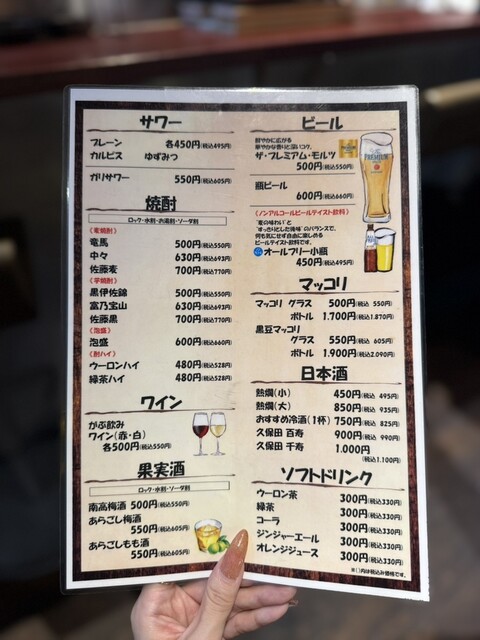 サワー
プレーン 各450円(税込495円)
カルピス ゆずみつ
ガリサワー 550円(税込605円)
焼酎
ロック・水割・お湯割・ソーダ割
《麦焼酎》
竜馬 500円(税込550円)
中々 630円(税込693円)
佐藤麦 700円(税込770円)
《芋焼酎》
黒伊佐錦 500円(税込550円)
富乃宝山 630円(税込693円)
佐藤黒 700円(税込770円)
《泡盛》
泡盛 600円(税込660円)
《酎ハイ》
ウーロンハイ 480円(税込528円)
緑茶ハイ 480円(税込528円)
ワイン
がぶ飲み
ワイン(赤・白)
各500円(税込550円)
果実酒
ロック・水割・ソーダ割
南高梅酒 500円(税込550円)
あらごし梅酒
550円(税込605円)
あらごしもも酒
550円(税込605円)
ビール
華やかな香りと深いコク。
ザ・プレミアム・モルツ
500円(税込550円)
瓶ビール
600円(税込660円)
《ノンアルコールビールテイスト飲料》
"麦の味わい"と
"すっきりとした後味"のバランスで、
何も気にせず自由に楽しめる
ビールテイスト飲料です。
オールフリー小瓶
450円(税込495円)
マッコリ
マッコリ グラス 500円(税込 550円)
ボトル 1.700円(税込1.870円)
黒豆マッコリ
グラス 550円(税込 605円)
ボトル 1.900円(税込2.090円)
日本酒
熱燗(小) 450円(税込 495円)
熱燗(大) 850円(税込 935円)
おすすめ冷酒(1杯) 750円(税込 825円)
久保田 百寿 900円(税込 990円)
久保田 千寿 1.000円
(税込1.100円)
ソフトドリンク
ウーロン茶 300円(税込330円)
緑茶 300円(税込330円)
コーラ 300円(税込330円)
ジンジャーエール 300円(税込330円)
オレンジジュース 300円(税込330円)
※( )内は税込み価格です。